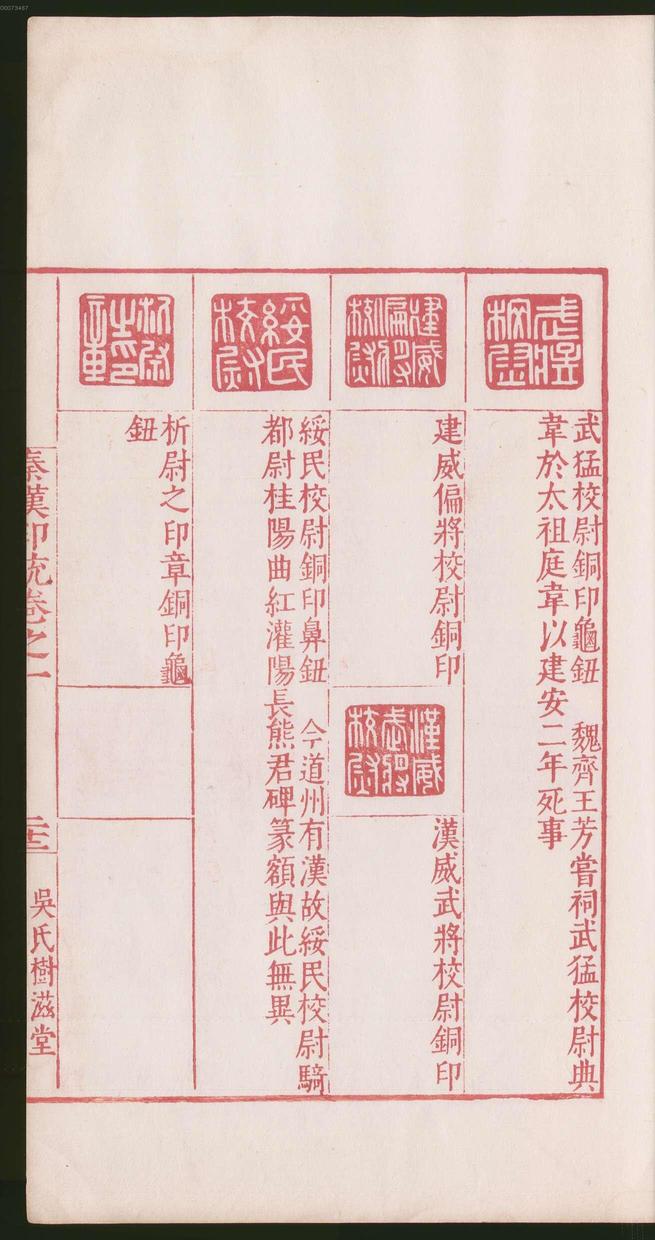 武猛校尉
武猛校尉銅印龜鈕　魏齊王芳嘗祠武猛校尉典
韋於太祖庭韋以建安二年死事
建威偏將校尉
建威偏將校尉銅印
漢威武將校尉
漢威武將校尉銅印
綏民校尉
綏民校尉銅印鼻鈕　今道州有漢故綏民校尉騎
都尉桂陽曲紅灌陽長熊君碑篆額與此無異
析尉之印章
析尉之印章銅印龜
鈕
秦漢印統卷之一
二十二
吳氏樹滋堂
00073487